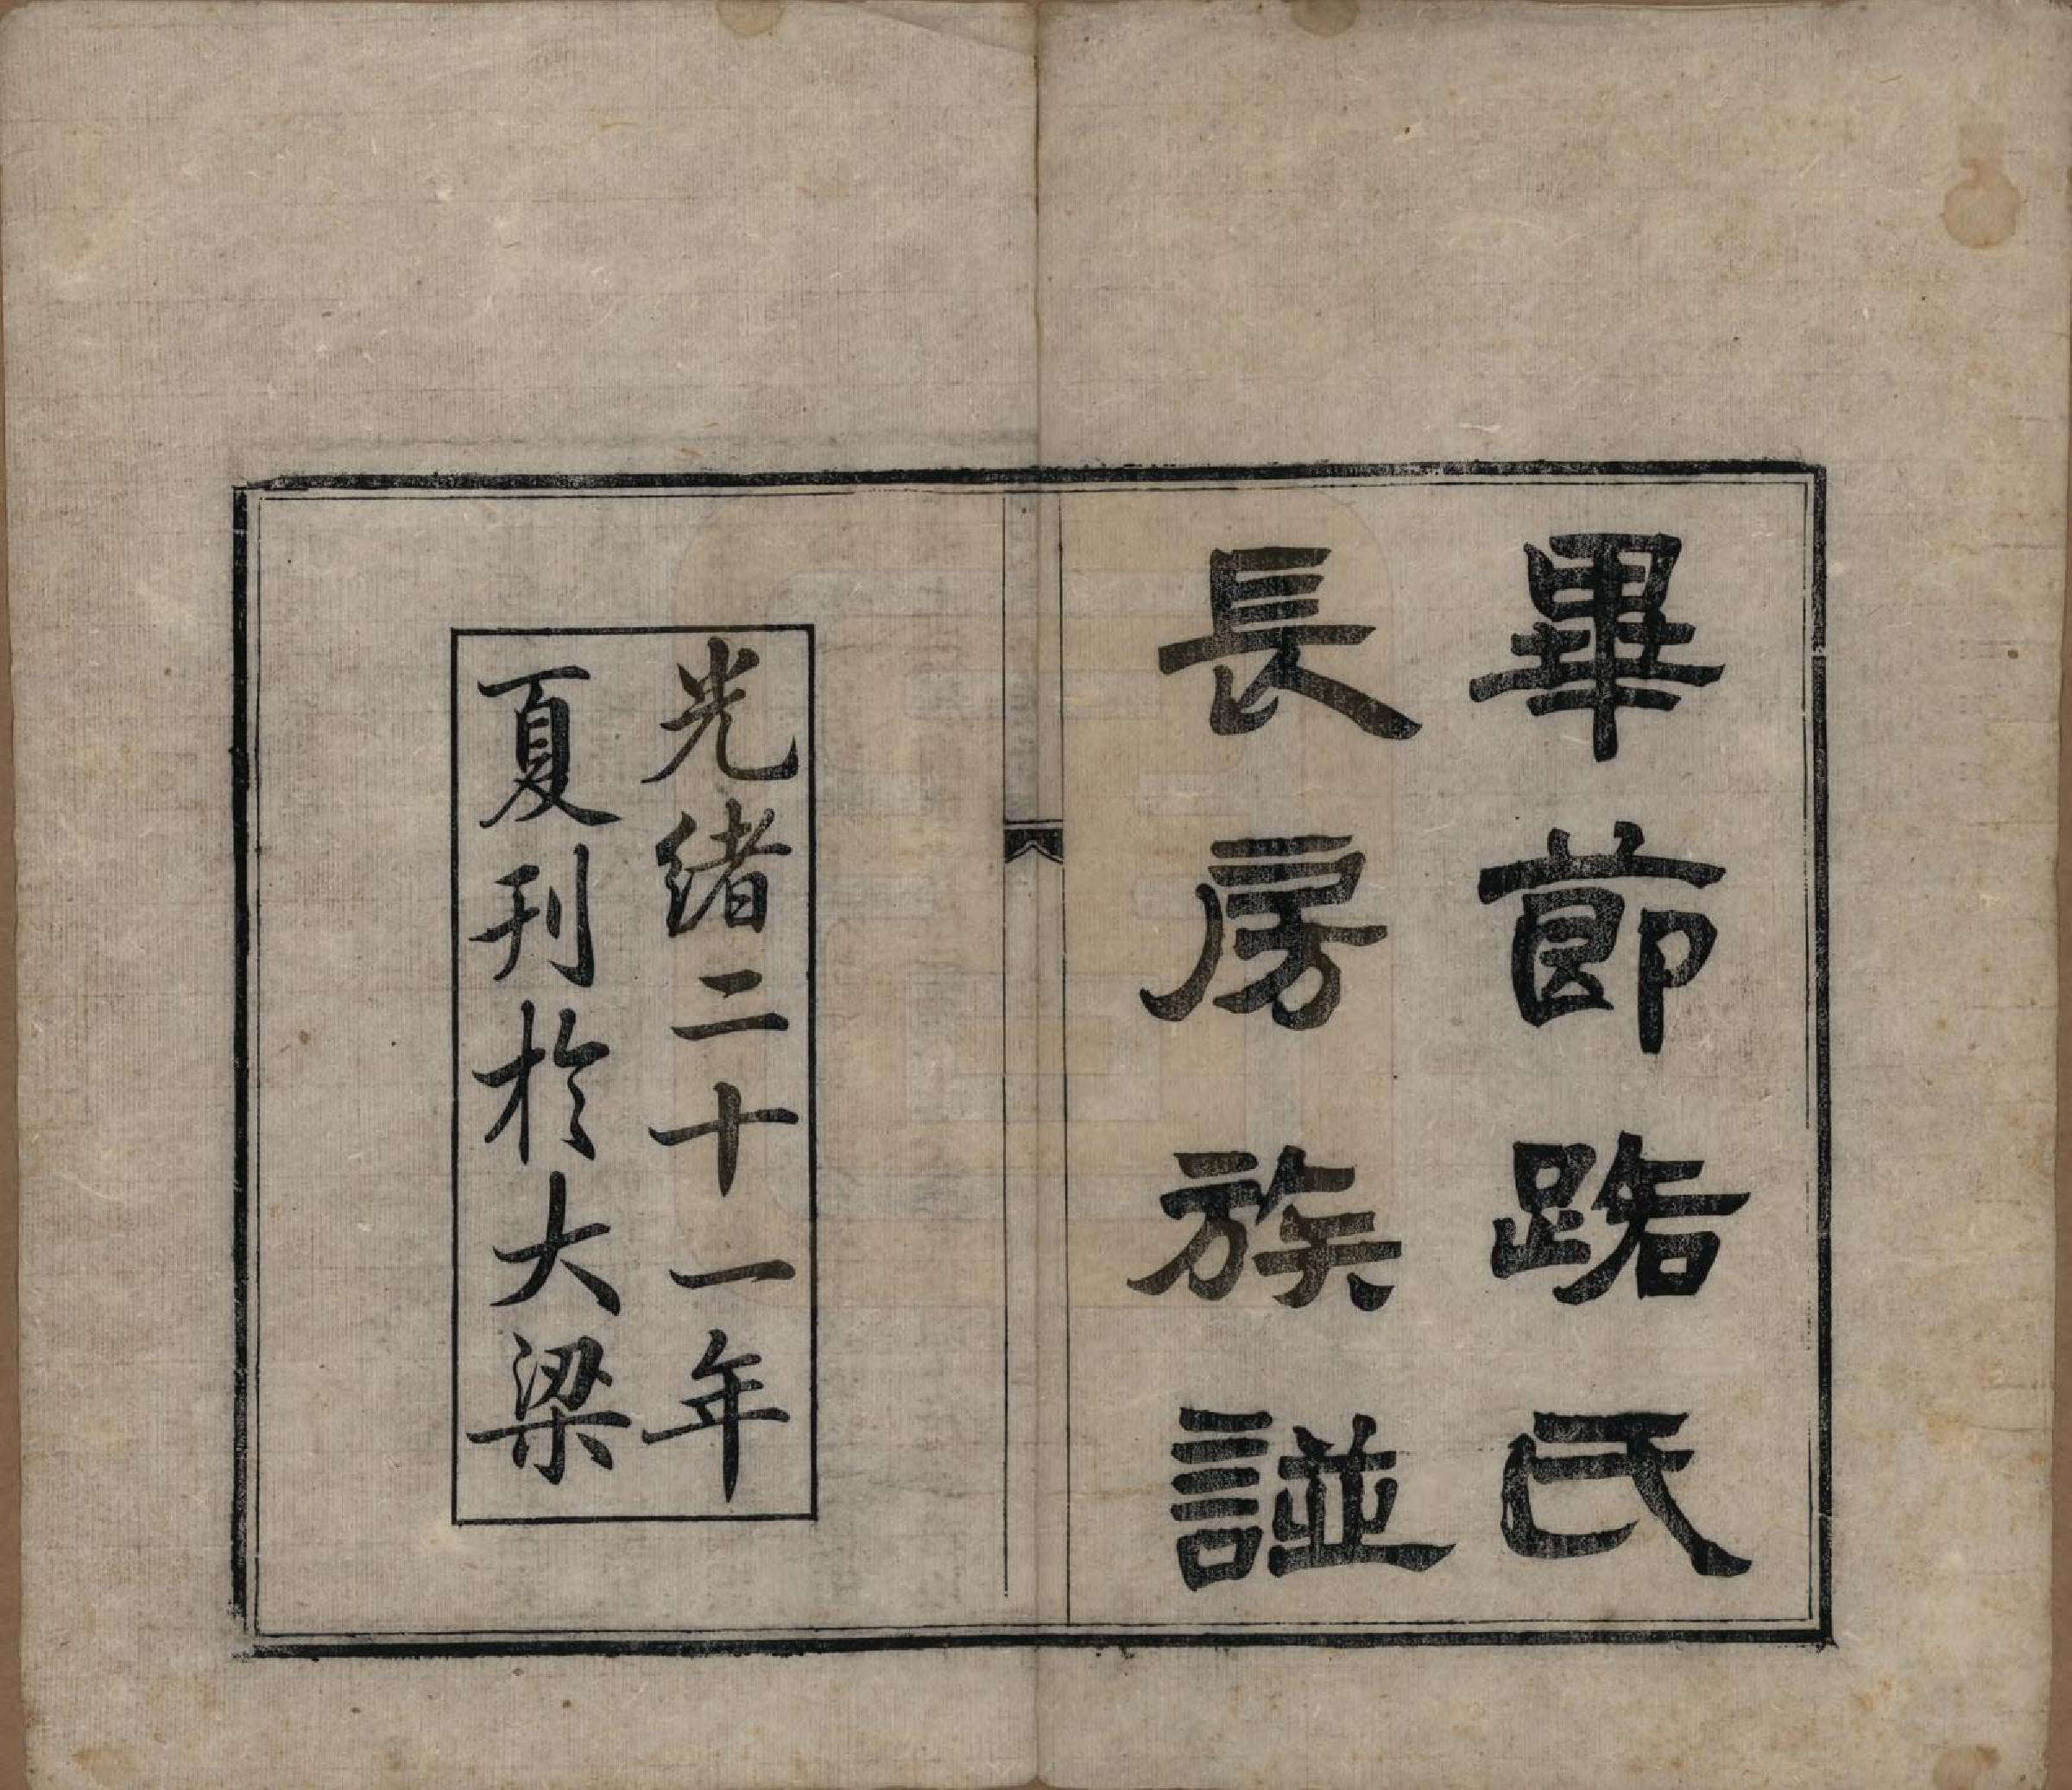 畢節路氏
長房族譜
光緒二十一年
夏刊於大梁